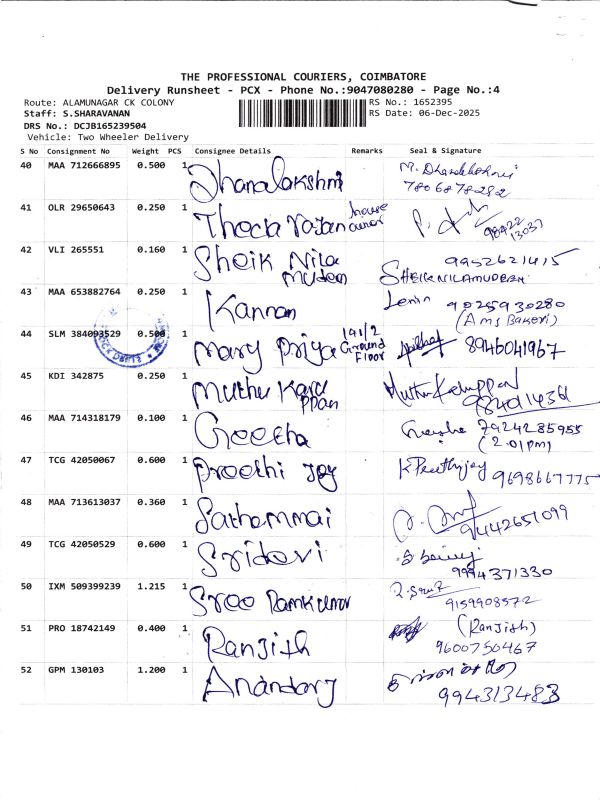 THE PROFESSIONAL COURIERS, COIMBATORE
Delivery Runsheet - PCX - Phone No.:9047080280 - Page No.:4
Route: ALAMUNAGAR CK COLONY
RS No.: 1652395
Staff: S.SHARAVANAN
RS Date: 06-Dec-2025
DRS No.: DCJB165239504
Vehicle: Two Wheeler Delivery
S No Consignment No Weight PCS Consignee Details Remarks Seal & Signature
40 MAA 712666895 0.500 1 Dhanalakshmi
7806878282
41 OLR 29650643 0.250 1 house owner
98422
13037
42 VLI 265551 0.160 1 Sheik Nila
Mudeen
9952621415
SHEIK NILAMUDEEN
43 MAA 653882764 0.250 1 Kannan
Lenin 9025930280
(AMS Bakery)
44 SLM 384093529 0.500 1 Mary Priya 191/2 Ground Floor 8946041967
45 KDI 342875 0.250 1 Muthu Karu
ppan
9840114361
46 MAA 714318179 0.100 1 Geetha
7924285955
(2.01pm)
47 TCG 42050067 0.600 1 Preethi Joy
9698667775
48 MAA 713613037 0.360 1 Sathammai
9442651099
49 TCG 42050529 0.600 1 Sridevi
9994371330
50 IXM 509399239 1.215 1 Sree Ramkumar
9159908572
51 PRO 18742149 0.400 1 Ranjith
(Ranjith)
9600750467
52 GPM 130103 1.200 1 Anandaraj
994313483